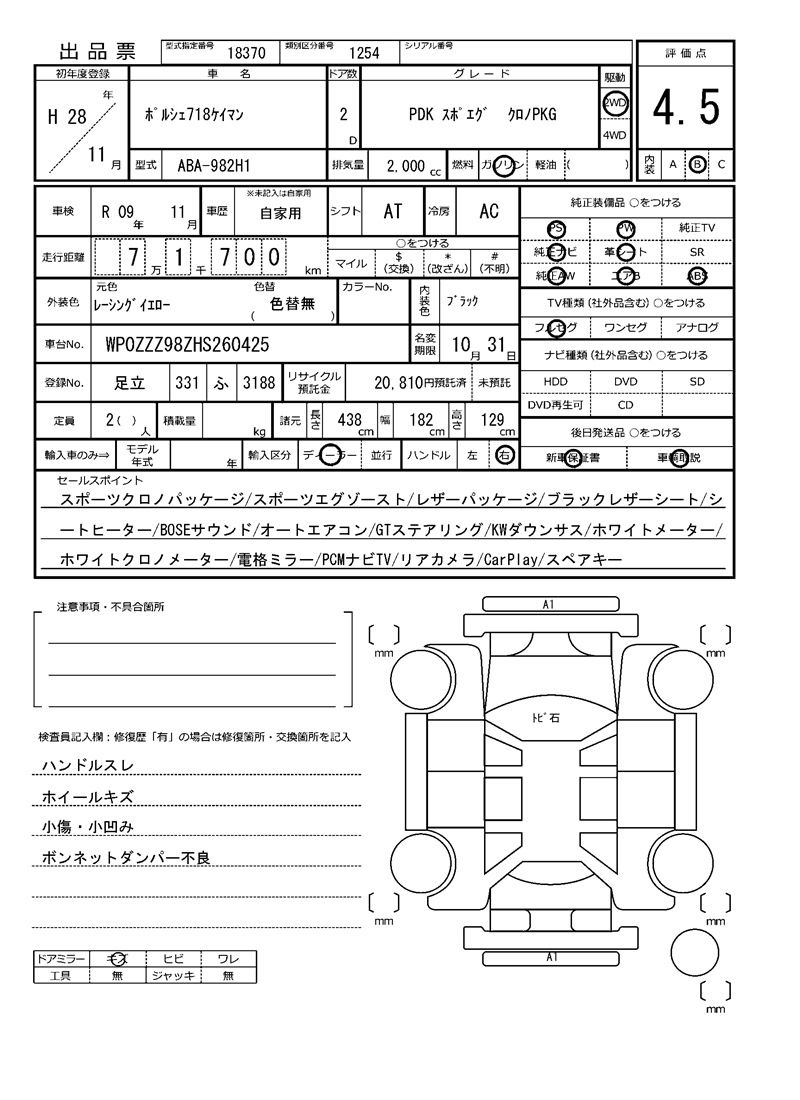 出品票
型式指定番号 18370 類別区分番号 1254 シリアル番号
評価点
4.5
内装 A B C
初年度登録 車 名 ドア数 グレード 駆動
H 28 年 11 月 ﾎﾟﾙｼｪ718ｹｲﾏﾝ 2 D PDK ｽﾎﾟｴｸﾞ ｸﾛﾉPKG 2WD
4WD
型式 ABA-982H1 排気量 2.000 cc 燃料 ガソリン 軽油 ( )
車検 R 09 年 11 月 車歴 ※未記入は自家用 自家用 シフト AT 冷房 AC
走行距離 7 万 1 千 7 0 0 km
○をつける
マイル $ (交換) * (改ざん) # (不明)
外装色 元色 ﾚｰｼﾝｸﾞｲｴﾛｰ 色替 ( 色替無 ) カラーNo. 内装色 ﾌﾞﾗｯｸ
車台No. WP0ZZZ98ZHS260425 名変期限 10 月 31 日
登録No. 足立 331 ふ 3188 リサイクル預託金 20,810円預託済 未預託
定員 2( ) 人 積載量 kg 諸元 長さ 438 cm 幅 182 cm 高さ 129 cm
輸入車のみ⇒ モデル年式 年 輸入区分 ディーラー 並行 ハンドル 左 右
純正装備品 ○をつける
PS PW 純正TV
純正ナビ 革シート SR
純正AW エアB ABS
TV種類(社外品含む)○をつける
フルセグ ワンセグ アナログ
ナビ種類(社外品含む)○をつける
HDD DVD SD
DVD再生可 CD
後日発送品 ○をつける
新車保証書 車輌取説
セールスポイント
スポーツクロノパッケージ/スポーツエグゾースト/レザーパッケージ/ブラックレザーシート/シ
ートヒーター/BOSEサウンド/オートエアコン/GTステアリング/KWダウンサス/ホワイトメーター/
ホワイトクロノメーター/電格ミラー/PCMナビTV/リアカメラ/CarPlay/スペアキー
注意事項・不具合箇所
検査員記入欄：修復歴「有」の場合は修復箇所・交換箇所を記入
ハンドルスレ
ホイールキズ
小傷・小凹み
ボンネットダンパー不良
ドアミラー キズ ヒビ ワレ
工具 無 ジャッキ 無
A1
mm
mm
ﾄﾋﾞ石
mm
mm
A1
mm